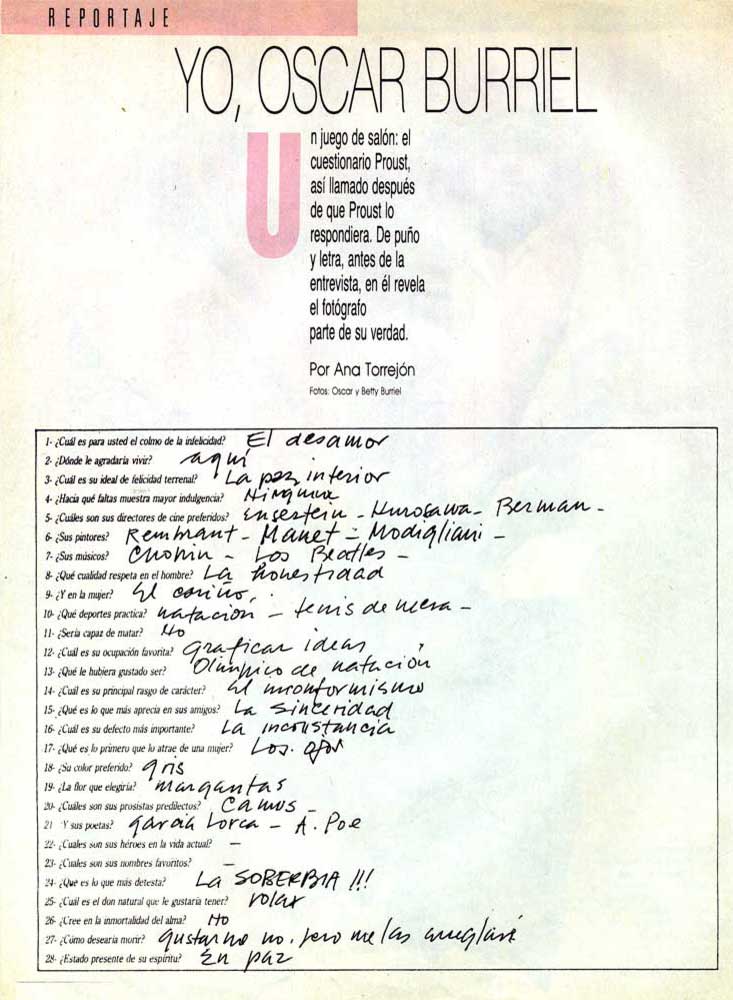 REPORTAJE
YO, OSCAR BURRIEL
Un juego de salón: el
cuestionario Proust,
así llamado después
de que Proust lo
respondiera. De puño
y letra, antes de la
entrevista, en él revela
el fotógrafo
parte de su verdad.
Por Ana Torrejón
Fotos: Oscar y Betty Burriel
1- ¿Cuál es para usted el colmo de la infelicidad? El desamor
2- ¿Dónde le agradaría vivir? aquí
3- ¿Cuál es su ideal de felicidad terrenal? La paz interior
4- ¿Hacia qué faltas muestra mayor indulgencia? Ninguna
5- ¿Cuáles son sus directores de cine preferidos? Ensertein - Kurosawa - Berman -
6- ¿Sus pintores? Rembrant - Manet - Modigliani -
7- ¿Sus músicos? Chopin - Los Beatles -
8- ¿Qué cualidad respeta en el hombre? La honestidad
9- ¿Y en la mujer? El cariño.
10- ¿Qué deportes practica? natación - tenis de mesa -
11- ¿Sería capaz de matar? No
12- ¿Cuál es su ocupación favorita? Graficar ideas
13- ¿Qué le hubiera gustado ser? Olímpico de natación
14- ¿Cuál es su principal rasgo de carácter? El inconformismo
15- ¿Qué es lo que más aprecia en sus amigos? La sinceridad
16- ¿Cuál es su defecto más importante? La inconstancia
17- ¿Qué es lo primero que lo atrae de una mujer? Los ojos
18- ¿Su color preferido? gris
19- ¿La flor que elegiría? margaritas
20- ¿Cuáles son sus prosistas predilectos? Camus -
21 Y sus poetas? García Lorca - A. Poe
22- ¿Cuales son sus héroes en la vida actual? -
23- ¿Cuales son sus nombres favoritos? -
24- ¿Que es lo que más detesta? La SOBERBIA !!!
25- ¿Cuál es el don natural que le gustaría tener? volar
26- ¿Cree en la inmortalidad del alma? No
27- ¿Cómo desearía morir? gustarme no. pero me las arreglaré
28- ¿Estado presente de su espíritu? En paz